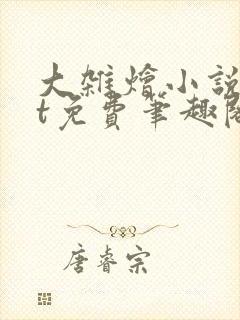 大雜燴小說
t免費筆趣閣
唐睿宗